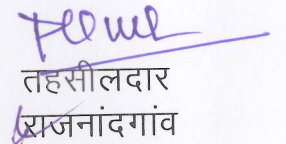 तहसीलदार
राजनांदगांव